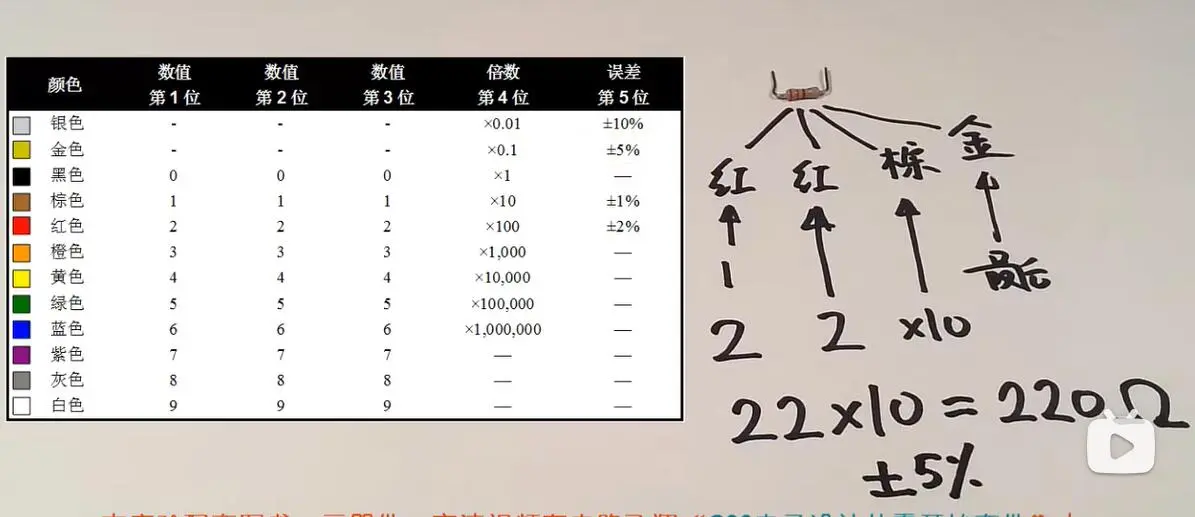 颜色 数值 第1位 数值 第2位 数值 第3位 倍数 第4位 误差 第5位
银色 - - - ×0.01 ±10%
金色 - - - ×0.1 ±5%
黑色 0 0 0 ×1 —
棕色 1 1 1 ×10 ±1%
红色 2 2 2 ×100 ±2%
橙色 3 3 3 ×1,000 —
黄色 4 4 4 ×10,000 —
绿色 5 5 5 ×100,000 —
蓝色 6 6 6 ×1,000,000 —
紫色 7 7 7 — —
灰色 8 8 8 — —
白色 9 9 9 — —
红 红 棕 金
1 最后
2 2 ×10
22×10=220Ω
±5%